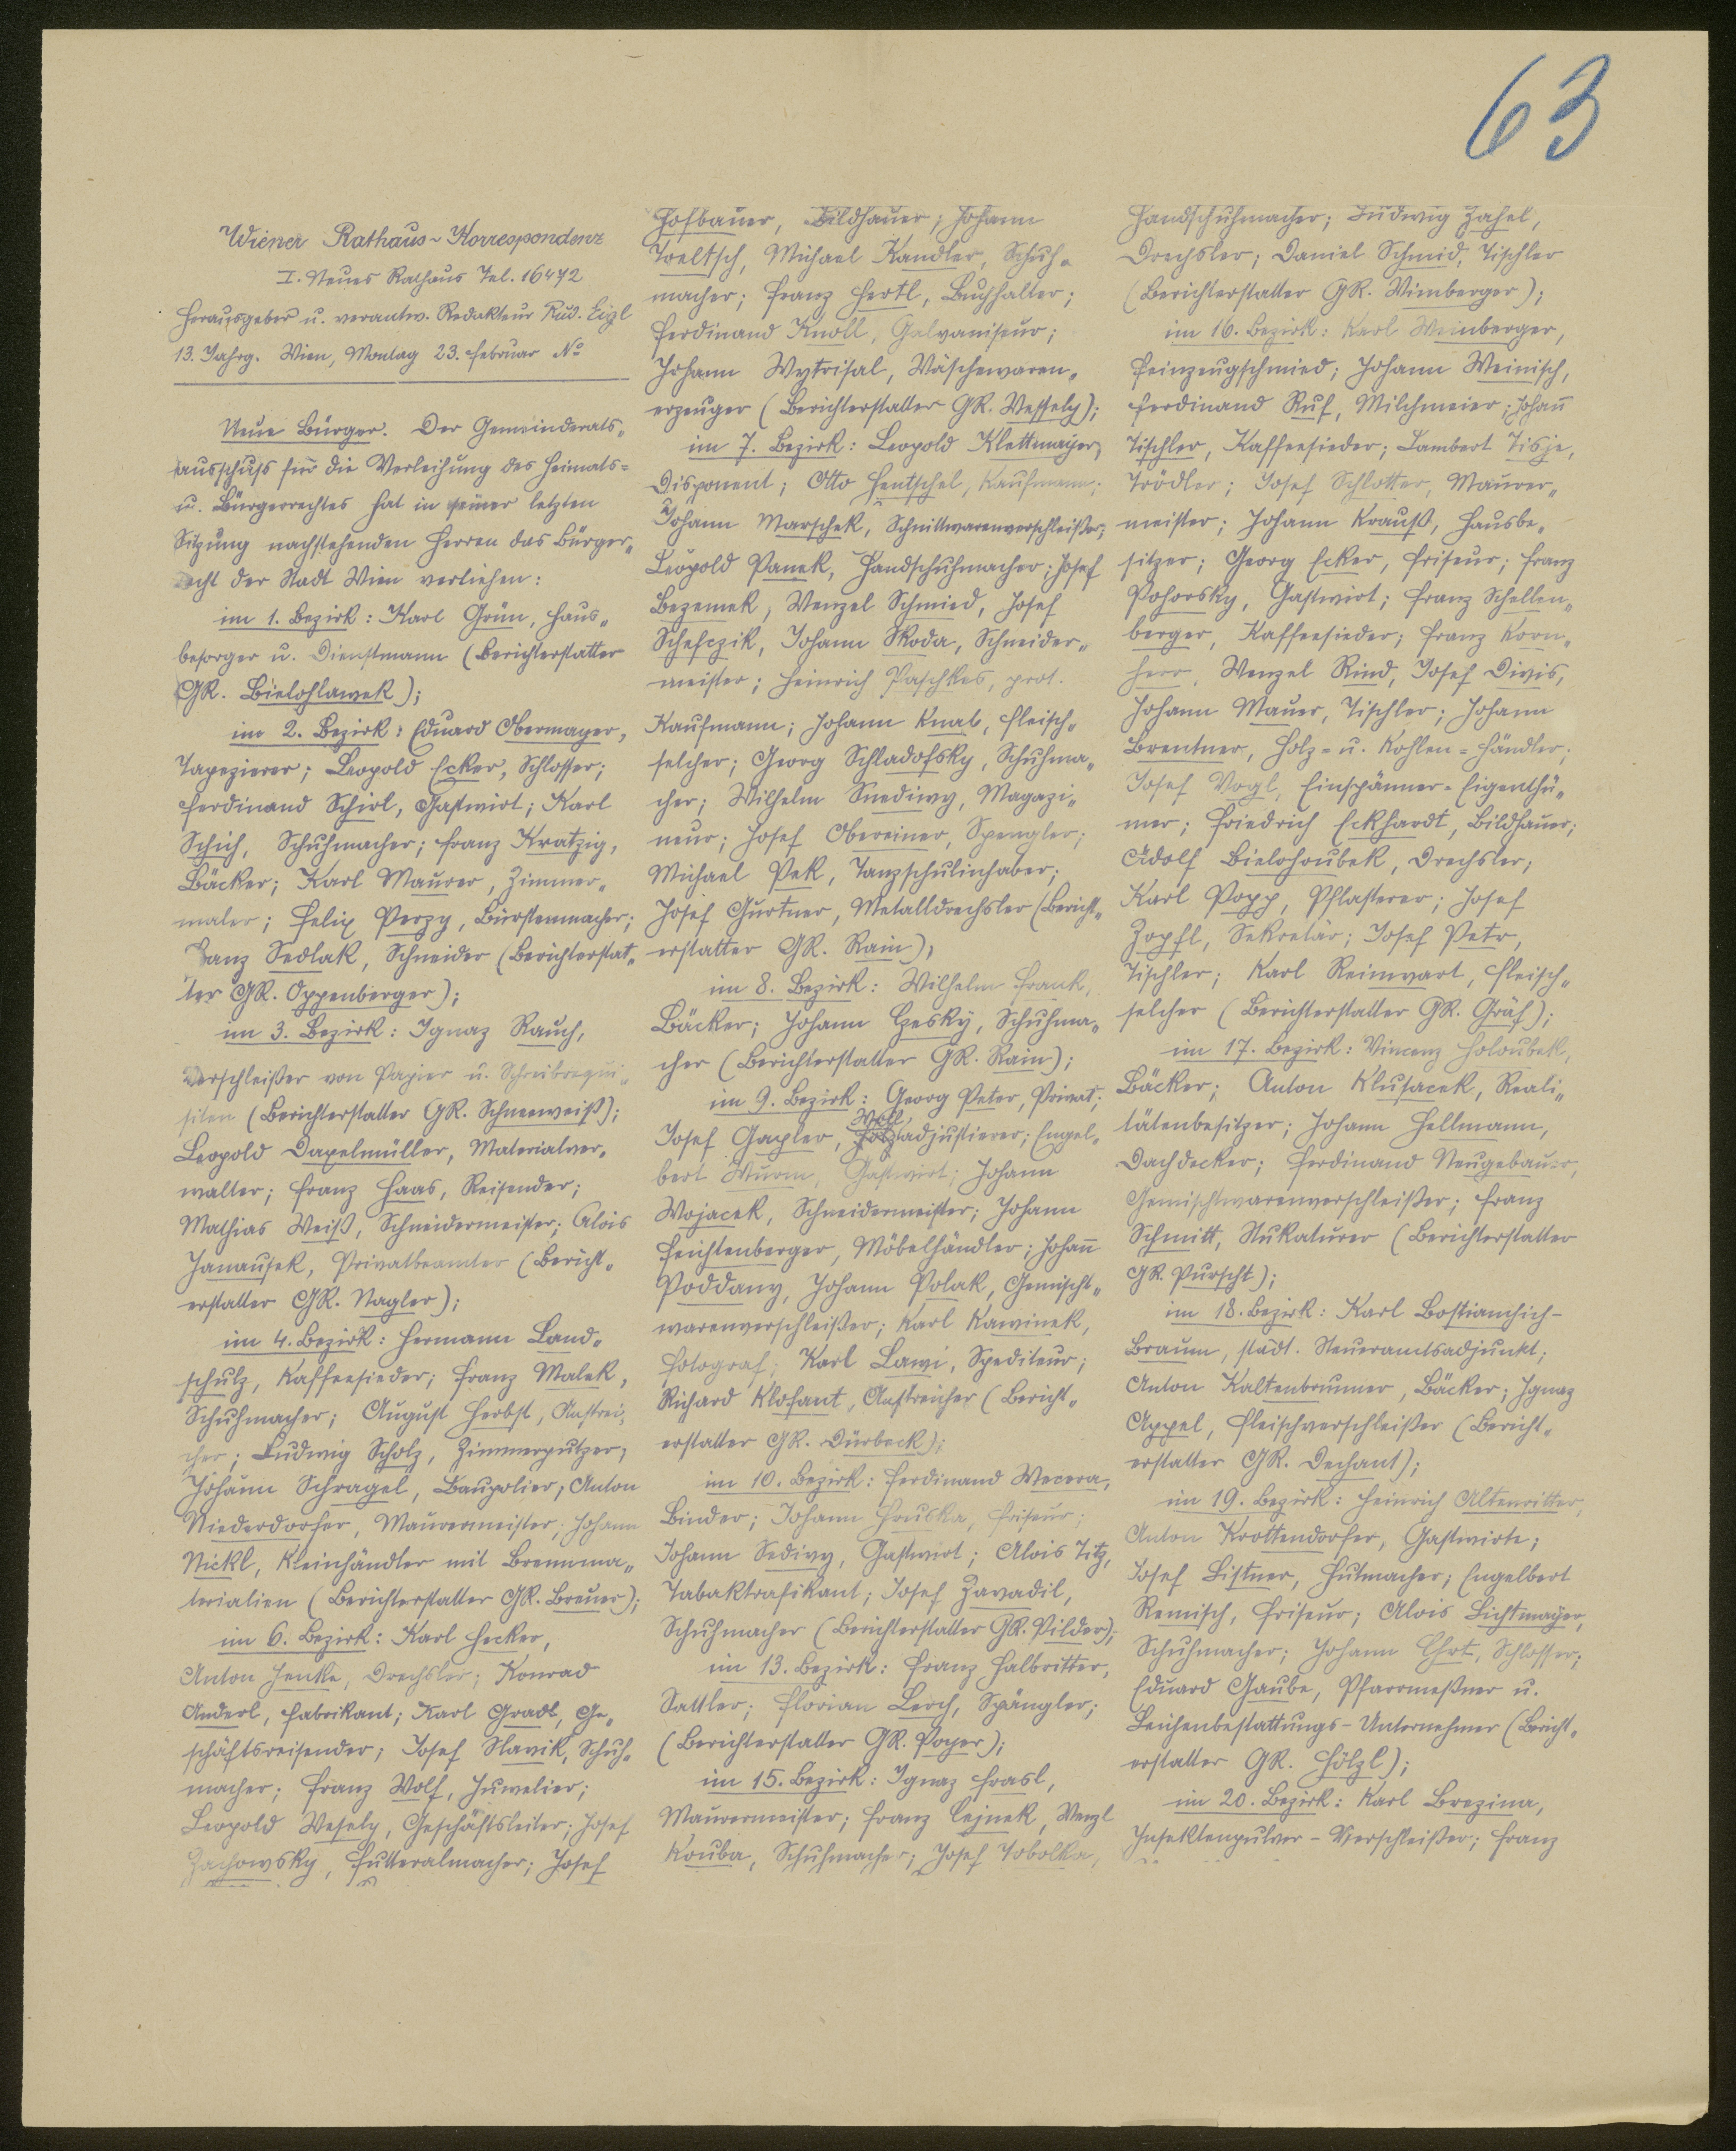 63
Wiener Rathaus-Korrespondenz
I. Neues Rathaus Tel. 16472
Herausgeber u. verantw. Redakteur Rud. Eigl
13. Jahrg. Wien, Montag 23. Februar No
Neue Bürger. Der Gemeinderats-
ausschuss für die Verleihung des Heimats-
u. Bürgerrechtes hat in seiner letzten
Sitzung nachstehenden Herren das Bürger-
recht der Stadt Wien verliehen:
im 1. Bezirk: Karl Grün, Haus-
besorger u. Dienstmann (Berichterstatter
GR. Bielohlawek);
im 2. Bezirk: Eduard Obermayer,
Tapezierer; Leopold Ecker, Schlosser;
Ferdinand Schirl, Gastwirt; Karl
Schich, Schuhmacher; Franz Kratzig,
Bäcker; Karl Maurer, Zimmer-
maler; Felix Perzy, Bürstenmacher;
Franz Sedlak, Schneider (Berichterstat-
ter GR. Oppenberger);
im 3. Bezirk: Ignaz Rauch,
Verschleißer von Papier u. Schreibrequi-
siten (Berichterstatter GR. Schneeweiß);
Leopold Daxelmüller, Materialver-
walter; Franz Haas, Reisender;
Mathias Weiß, Schneidermeister; Alois
Janausek, Privatbeamter (Bericht-
erstatter GR. Nagler);
im 4. Bezirk: Hermann Land-
schulz, Kaffeesieder; Franz Malek,
Schuhmacher; August Herbst, Anstrei-
cher; Ludwig Scholz, Zimmerputzer;
Johann Schragel, Baupolier; Anton
Niederdorfer, Maurermeister; Johann
Nickl, Kleinhändler mit Brennma-
terialien (Berichterstatter GR. Breuer);
im 6. Bezirk: Karl Hecker,
Anton Henke, Drechsler; Konrad
Anderl, Fabrikant; Karl Gradl, Ge-
schäftsreisender; Josef Slavik, Schuh-
macher; Franz Wolf, Juwelier;
Leopold Wesely, Geschäftsleiter; Josef
Zachowsky, Futteralmacher; Josef
Hofbauer, Bildhauer; Johann
Toeltsch, Michael Kandler, Schuh-
macher; Franz Hertl, Buchhalter;
Ferdinand Knoll, Galvaniseur;
Johann Wytrisal, Wäschewaren-
erzeuger (Berichterstatter GR. Wessely);
im 7. Bezirk: Leopold Klettmayer,
Disponent; Otto Hentschel, Kaufmann;
Johann Marschek, Schnittwarenverschleißer;
Leopold Panek, Handschuhmacher; Josef
Bezemek, Wenzel Schmied, Josef
Schefczik, Johann Skoda, Schneider-
meister; Heinrich Paschkes, prot.
Kaufmann; Johann Knab, Fleisch-
selcher; Georg Schladofsky, Schuhma-
cher; Wilhelm Snediwy, Magazi-
neur; Josef Obereiner, Spengler;
Michael Pek, Tanzschulinhaber;
Josef Gurtner, Metalldrechsler (Bericht-
erstatter GR. Rain);
im 8. Bezirk: Wilhelm Frank,
Bäcker; Johann Czesky, Schuhma-
cher (Berichterstatter GR. Rain);
im 9. Bezirk: Georg Peter, Privat;
Josef Gapler, Holzadjustierer; Engel-
bert Wurm, Gastwirt; Johann
Wojacek, Schneidermeister; Johann
Feichtenberger, Möbelhändler; Johann
Poddany, Johann Polak, Gemischt-
warenverschleißer; Karl Kawinek,
Fotograf; Karl Lawi, Spediteur;
Richard Klofant, Anstreicher (Bericht-
erstatter GR. Dürbeck);
im 10. Bezirk: Ferdinand Wecera,
Binder; Johann Hruska, Friseur;
Johann Sedivy, Gastwirt; Alois Titz,
Tabaktrafikant; Josef Zavadil,
Schuhmacher (Berichterstatter GR. Pilder);
im 13. Bezirk: Franz Halbritter,
Sattler; Florian Lerch, Spängler;
(Berichterstatter GR. Poyer);
im 15. Bezirk: Ignaz Hrasl,
Maurermeister; Franz Cejnek, Wenzl
Kouba, Schuhmacher; Josef Tobolka,
Handschuhmacher; Ludwig Zahel,
Drechsler; Daniel Schmid, Tischler
(Berichterstatter GR. Wimberger);
im 16. Bezirk: Karl Weinberger,
Feinzeugschmied; Johann Weinisch,
Ferdinand Ruf, Milchmeier; Johann
Tischler, Kaffeesieder; Lambert Tisje,
Trödler; Josef Schlotter, Maurer-
meister; Johann Krauß, Hausbe-
sitzer; Georg Ecker, Friseur; Franz
Pohorsky, Gastwirt; Franz Schellen-
berger, Kaffeesieder; Franz Korn-
herr, Wenzel Rind, Josef Divis,
Johann Mauer, Tischler; Johann
Brentner, Holz- u. Kohlen-Händler;
Josef Vogl, Einspänner-Eigenthü-
mer; Friedrich Eckhardt, Bildhauer;
Adolf Bielohoubek, Drechsler;
Karl Popp, Pflasterer; Josef
Zopfl, Sekretär; Josef Petr,
Tischler; Karl Reimwart, Fleisch-
selcher (Berichterstatter GR. Gräf);
im 17. Bezirk: Vincenz Holoubek,
Bäcker; Anton Klusacek, Reali-
tätenbesitzer; Johann Hellmann,
Dachdecker; Ferdinand Neugebauer,
Gemischtwarenverschleißer; Franz
Schmitt, Stukaturer (Berichterstatter
GR. Purscht);
im 18. Bezirk: Karl Bostiamsich-
Braum, städt. Steueramtsadjunkt;
Anton Kaltenbrunner, Bäcker; Ignaz
Appel, Fleischverschleißer (Bericht-
erstatter GR. Dechant);
im 19. Bezirk: Heinrich Altenritter,
Anton Krottendorfer, Gastwirte;
Josef Listner, Hutmacher; Engelbert
Remisch, Friseur; Alois Lichtmayer,
Schuhmacher; Johann Ehrt, Schlosser;
Eduard Gaube, Pfarrmeßner u.
Leichenbestattungs-Unternehmer (Bericht-
erstatter GR. Hölzl);
im 20. Bezirk: Karl Brezina,
Insektenpulver-Verschleißer; Franz